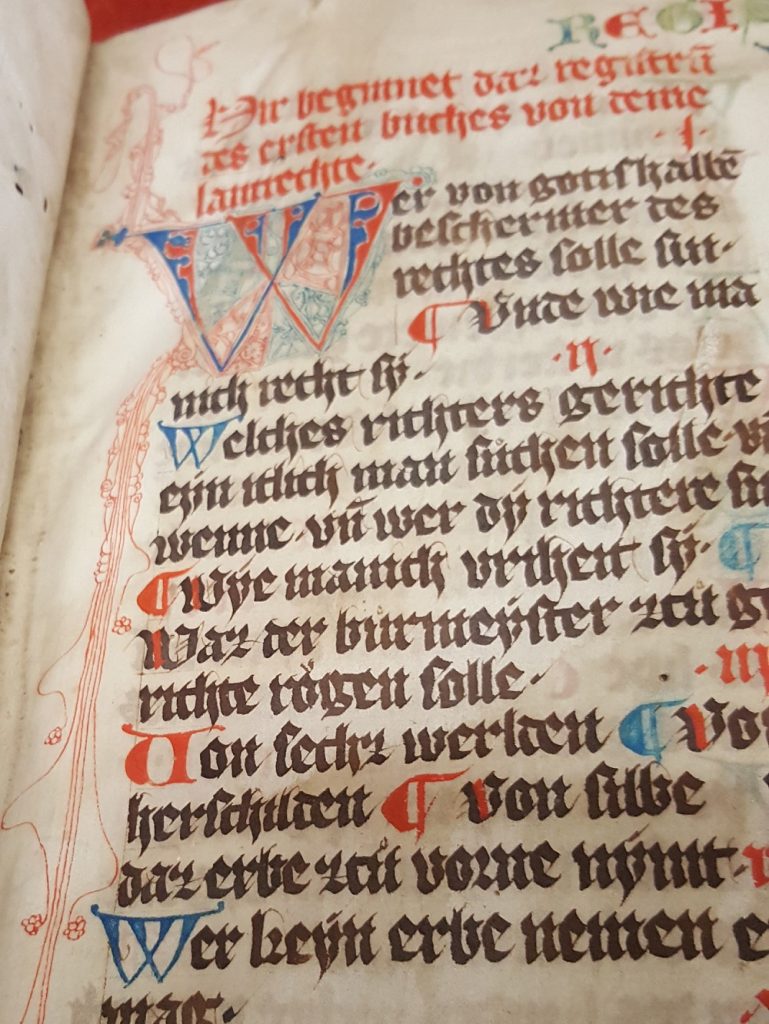 REGI
Hir beginnet daz registrū
des ersten buches von deme
lantrechte· ·I·
Wer von gottishalbē
beschermer des
rechtes solle sin·
¶ Unde wie ma
nich recht sy· ·ij·
Welches richters gerichte
eyn itlich man suchen solle· vn̄
wenne· vn̄ wer dy richtere sin
¶ Wye manich vriheit sy· ¶
Waz der burmeyster zcu ge
richte rögen solle· ·iij·
Von sechz werlden ¶ Von
herschilden ¶ von sibbe
daz erbe zcu vorne nymt·
Wer keyn erbe nemen
mag·